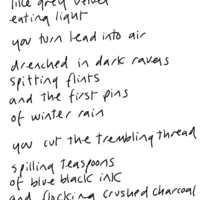 like grey velvet
eating light
you turn lead into air
drenched in dark ravens
spitting flints
and the first pins
of winter rain
you cut the trembling thread
spilling teaspoons
of blue black ink
and flocking crushed charcoal